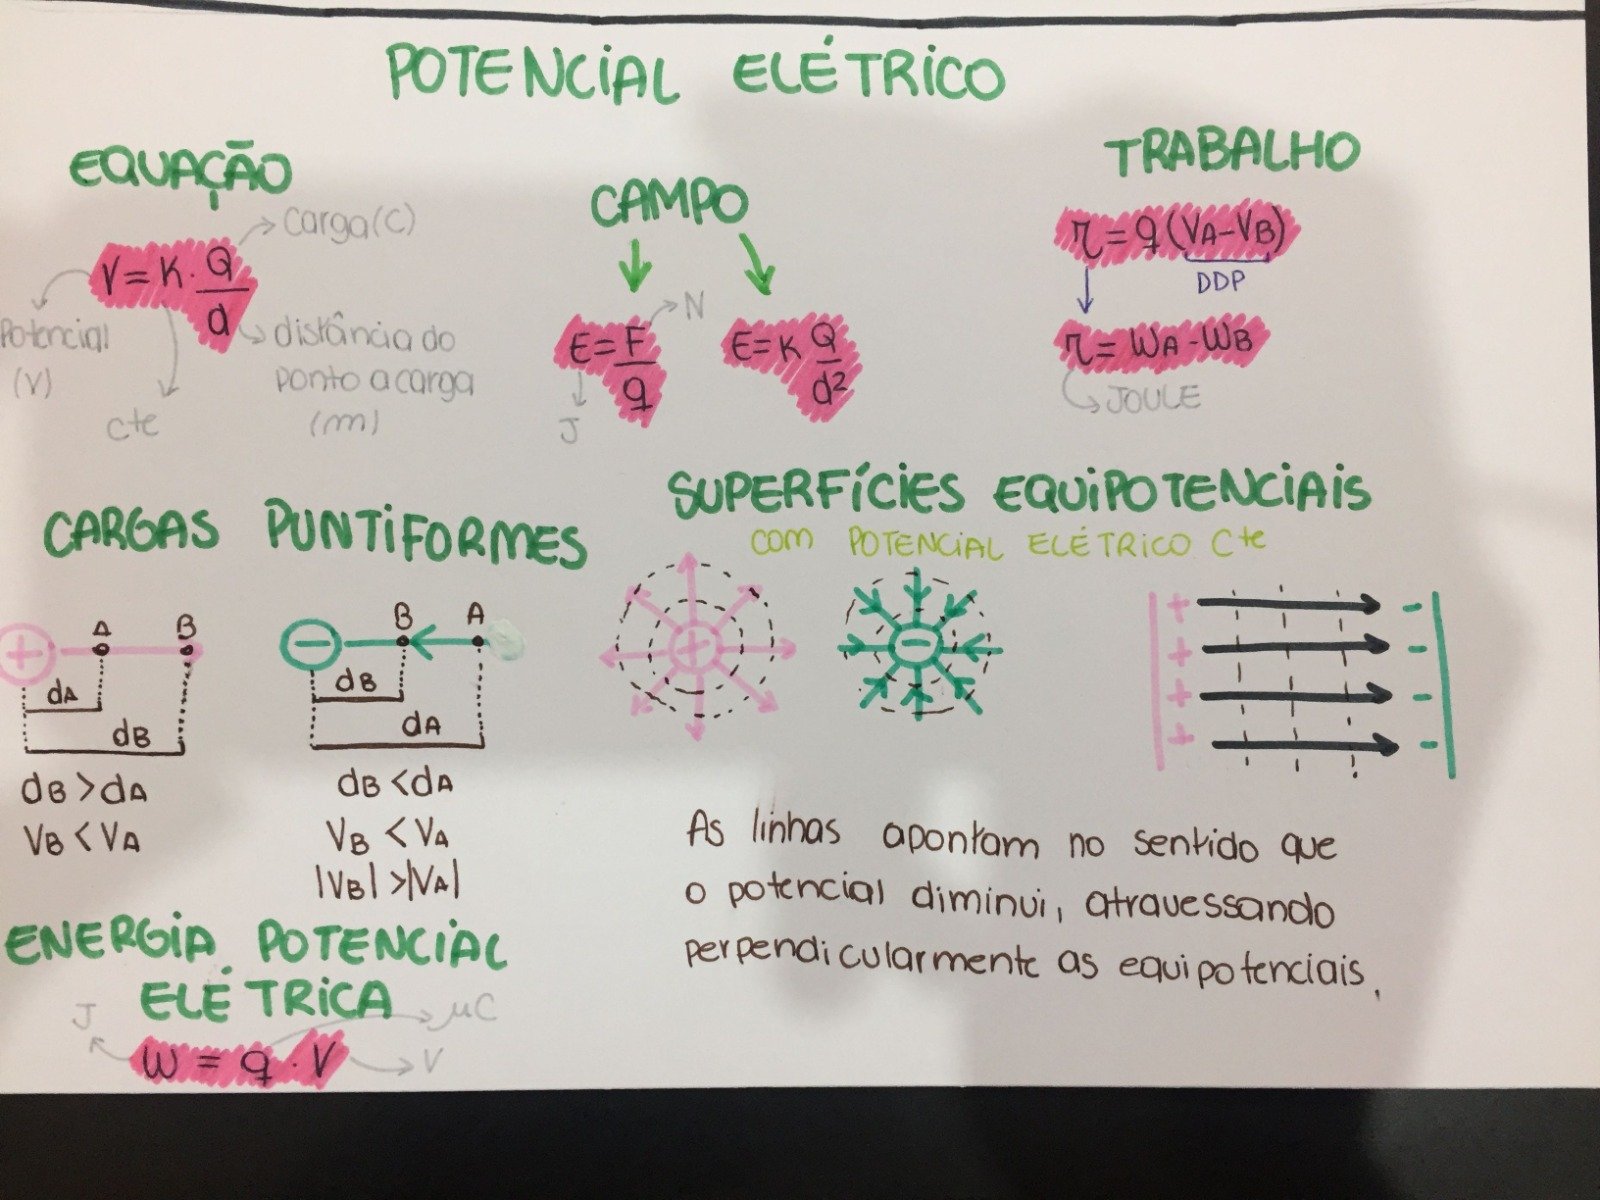 POTENCIAL ELÉTRICO
EQUAÇÃO
Carga(C)
V=K.Q/d
Potencial
(V)
cte
distância do
ponto a carga
(m)
CAMPO
E=F/q
N
J
E=K Q/d²
TRABALHO
τ=q(VA-VB)
DDP
τ=WA-WB
JOULE
CARGAS PUNTIFORMES
+
A
B
dA
dB
dB>dA
VB<VA
-
B
A
dB
dA
dB<dA
VB<VA
|VB|>|VA|
SUPERFÍCIES EQUIPOTENCIAIS
COM POTENCIAL ELÉTRICO Cte
+
-
+ -
+ -
+ -
+ -
As linhas apontam no sentido que
o potencial diminui, atravessando
perpendicularmente as equipotenciais.
ENERGIA POTENCIAL
ELÉTRICA
J
μC
W = q . V
V